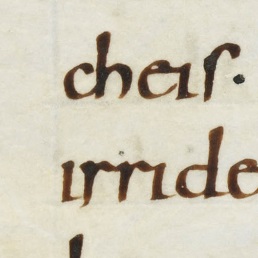 cheis.
irride